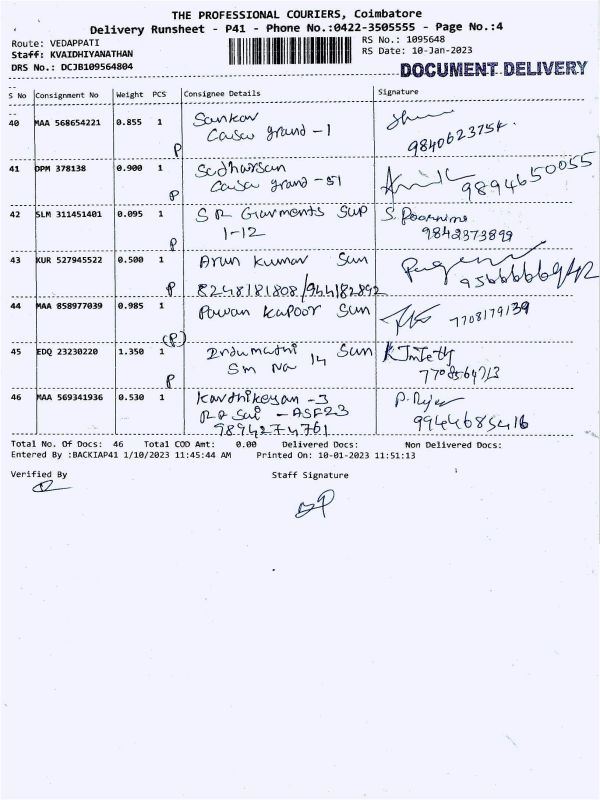 THE PROFESSIONAL COURIERS, Coimbatore
Delivery Runsheet - P41 - Phone No.:0422-3505555 - Page No.:4
Route: VEDAPPATI
RS No.: 1095648
Staff: KVAIDHIYANATHAN
RS Date: 10-Jan-2023
DRS No.: DCJB109564804
DOCUMENT DELIVERY
S No Consignment No Weight PCS Consignee Details Signature
40 MAA 568654221 0.855 1 Sankar
Casa grand -1
P 9840623754
41 DPM 378138 0.900 1 Sudharsan
Casa grand -51
P 9894650055
42 SLM 311451401 0.095 1 S R Garments Sup S. Poornima
1-12 9842373899
P
43 KUR 527945522 0.500 1 Arun Kumar Sun
P 8248181808/944182892
44 MAA 858977039 0.985 1 Pawan Kapoor Sun
7708179139
(P)
45 EDQ 23230220 1.350 1 Indumathi Sun
Sm No 14
P
46 MAA 569341936 0.530 1 Karthikeyan -3
R R Sai - ASF23
9894274761 9944685416
Total No. Of Docs: 46 Total COD Amt: 0.00 Delivered Docs: Non Delivered Docs:
Entered By :BACKIAP41 1/10/2023 11:45:44 AM Printed On: 10-01-2023 11:51:13
Verified By Staff Signature